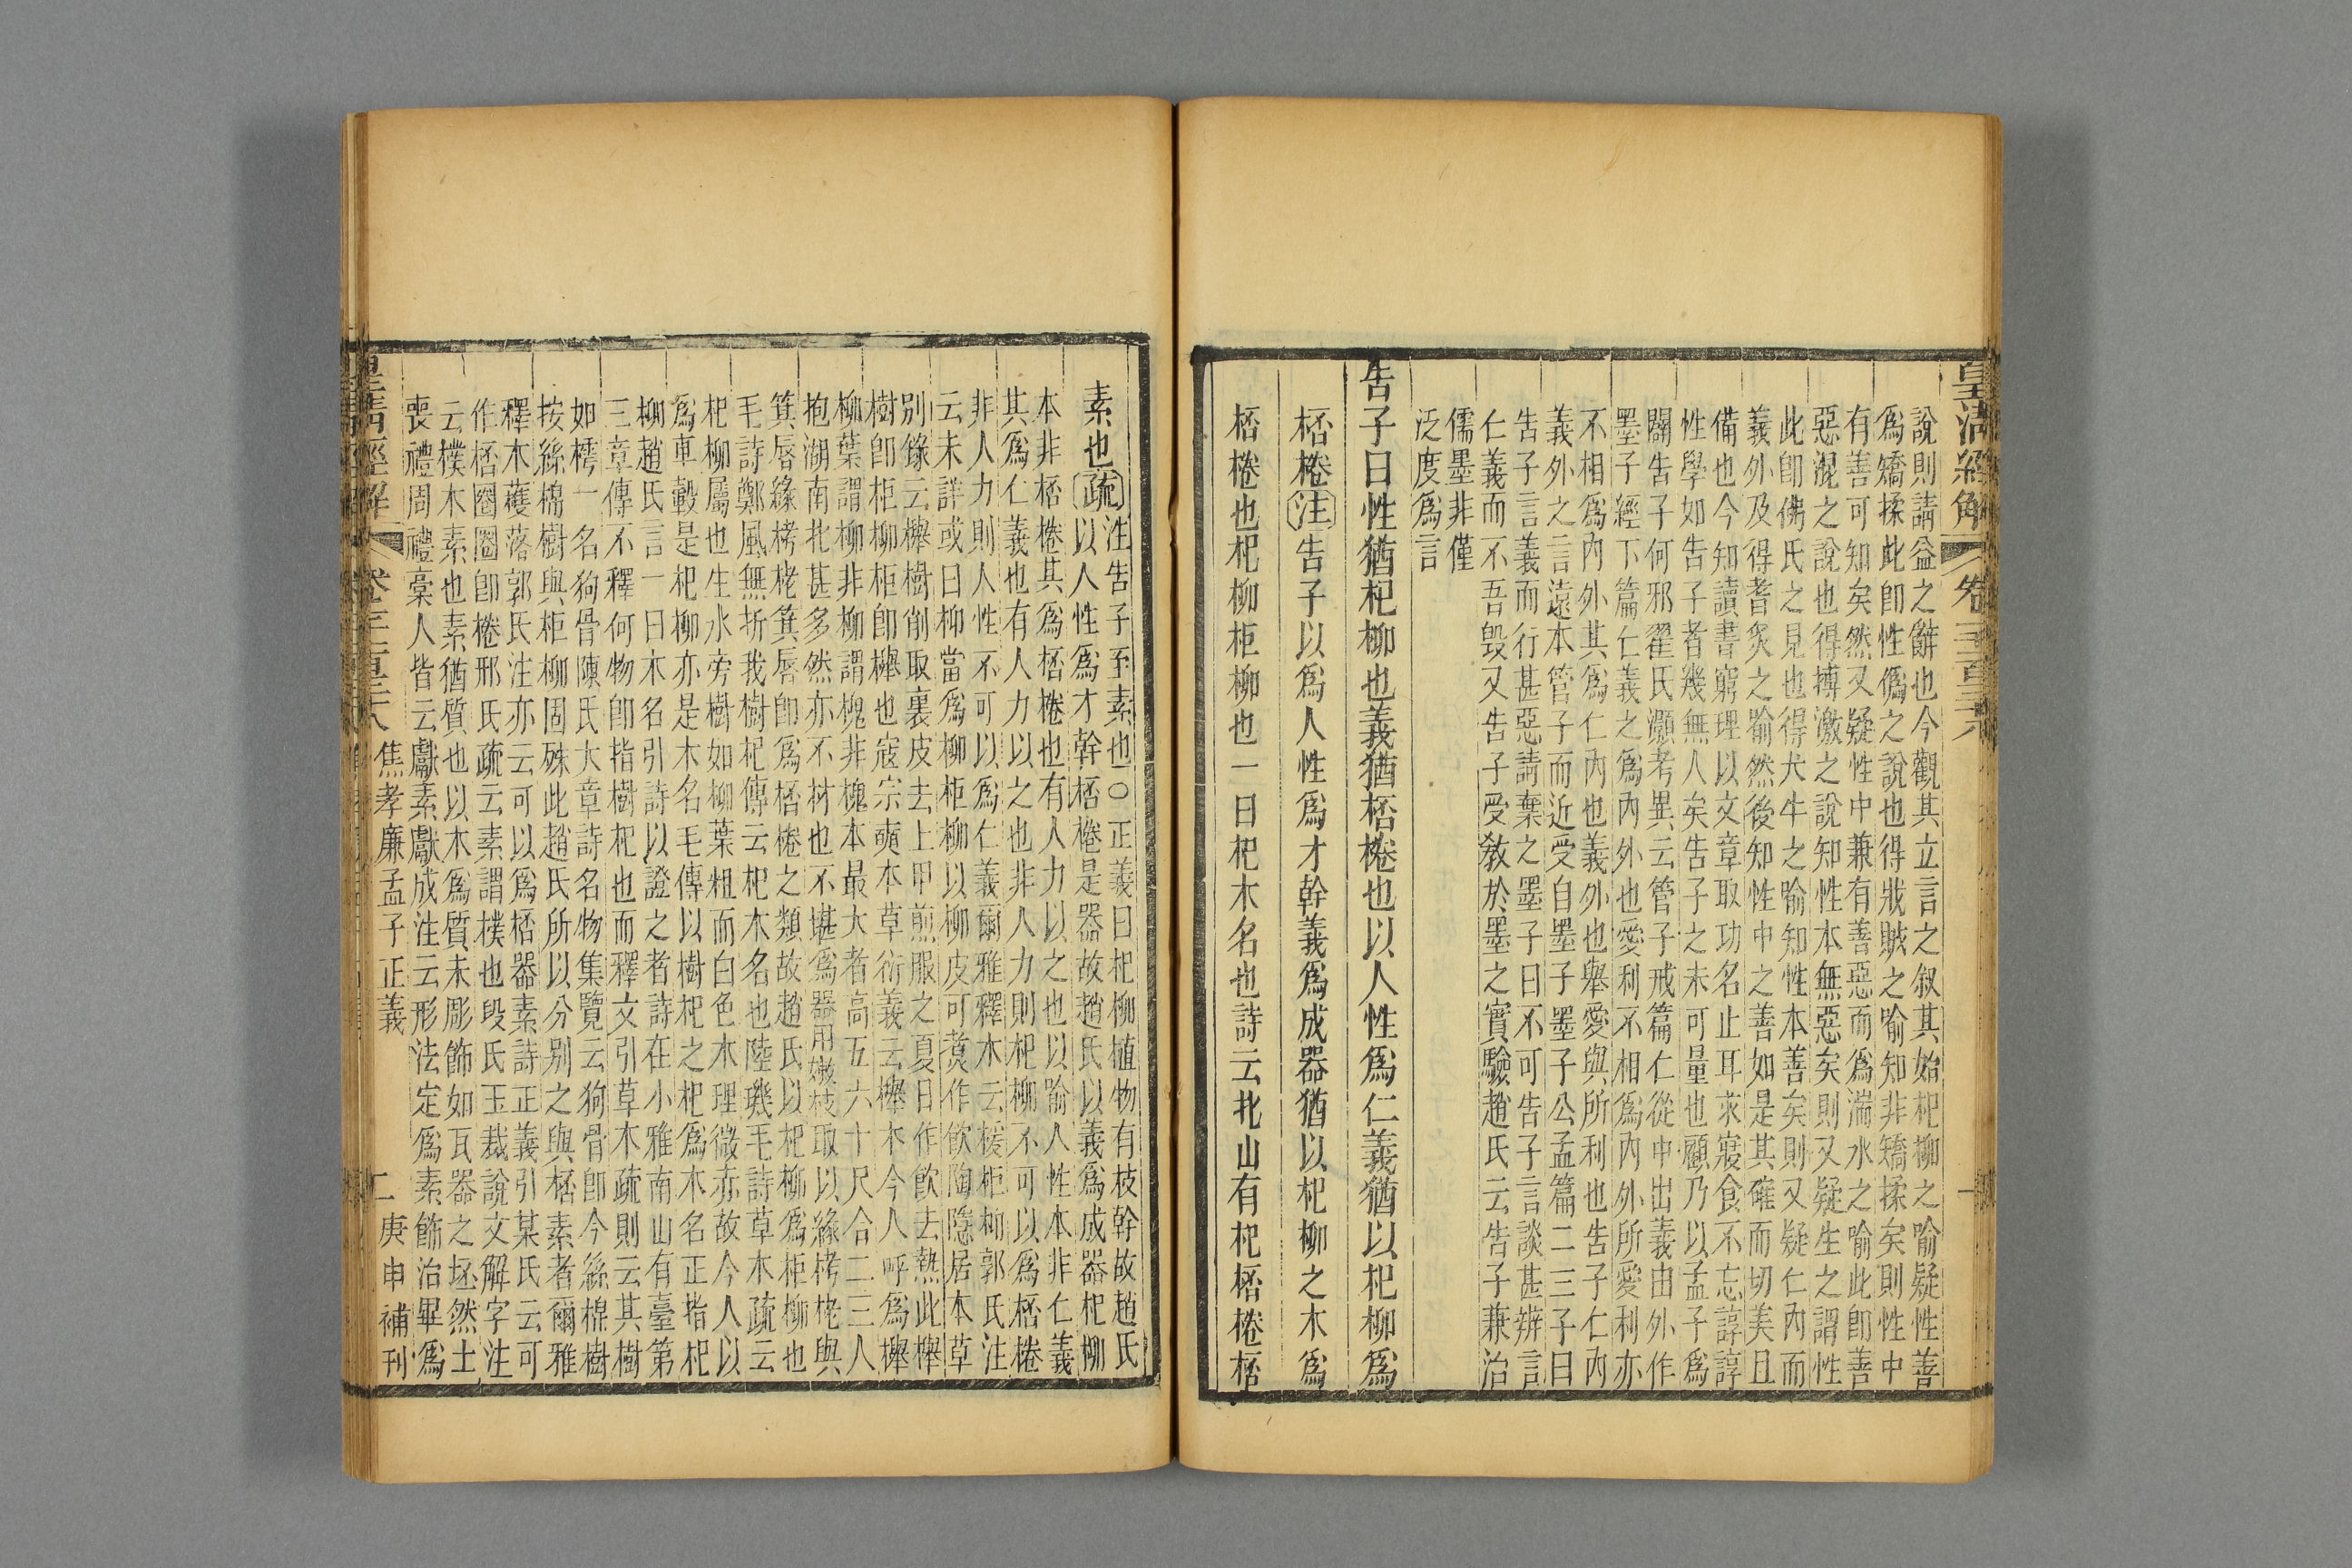 皇清經解 卷一千一百三十八
說則請益之辭也今觀其立言之叙其始杞柳之喻疑性善
爲矯揉此卽性僞之說也得戕賊之喻知非矯揉矣則性中
有善可知矣然又疑性中兼有善惡而爲湍水之喻此卽善
惡混之說也得搏激之說知性本無惡矣則又疑生之謂性
此卽佛氏之見也得犬牛之喻知性本善矣則又疑仁內而
義外及得耆炙之喻然後知性中之善如是其確而切美且
備也今知讀書窮理以文章取功名止耳求寢食不忘諄諄
性學如告子者幾無人矣告子之未可量也顧乃以孟子爲
闢告子何邪翟氏灝考異云管子戒篇仁從中出義由外作
墨子經下篇仁義之爲內外也愛利不相爲內外所愛利亦
不相爲內外其爲仁內也義外也舉愛與所利也告子仁內
義外之言遠本管子而近受自墨子墨子公孟篇二三子曰
告子言義而行甚惡請棄之墨子曰不可告子言談甚辨言
仁義而不吾毀又告子受敎於墨之實驗趙氏云告子兼治
儒墨非僅
泛度爲言
告子曰性猶杞柳也義猶桮棬也以人性爲仁義猶以杞柳爲
桮棬注告子以爲人性爲才幹義爲成器猶以杞柳之木爲
桮棬也杞柳柜柳也一曰杞木名也詩云北山有杞桮棬桮
素也疏注告子至素也○正義曰杞柳植物有枝幹故趙氏
以人性爲才幹桮棬是器故趙氏以義爲成器杞柳
本非桮棬其爲桮棬也有人力以之也以喻人性本非仁義
其爲仁義也有人力以之也非人力則杞柳不可以爲桮棬
非人力則人性不可以爲仁義爾雅釋木云楥柜桺郭氏注
云未詳或曰桺當爲柳柜柳以柳皮可煮作飮陶隱居本草
別錄云櫸樹削取裏皮去上甲煎服之夏日作飮去熱此櫸
樹卽柜柳柜卽櫸也寇宗奭本草衍義云櫸木今人呼爲櫸
柳葉謂柳非柳謂槐非槐本最大者高五六十尺合二三人
抱湖南北甚多然亦不材也不堪爲器用嫩枝取以緣栲栳與
箕唇緣栲栳箕唇卽爲桮棬之類故趙氏以杞柳爲柜柳也
毛詩鄭風無折我樹杞傳云杞木名也陸璣毛詩草木疏云
杞柳屬也生水旁樹如柳葉粗而白色木理微亦故今人以
爲車轂是杞柳亦是木名毛傳以樹杞之杞爲木名正指杞
柳趙氏言一曰木名引詩以證之者詩在小雅南山有臺第
三章傳不釋何物卽指樹杞也而釋文引草木疏則云其樹
如樗一名狗骨陳氏大章詩名物集覽云狗骨卽今絲棉樹
按絲棉樹與柜柳固殊此趙氏所以分別之與桮素者爾雅
釋木蔰落郭氏注亦云可以爲桮器素詩正義引某氏云可
作桮圈圈卽棬邢氏疏云素謂樸也段氏玉裁說文解字注
云樸木素也素猶質也以木爲質未彫飾如瓦器之坯然士
喪禮周禮槀人皆云獻素獻成注云形法定爲素飾治畢爲
皇清經解 卷一千一百三十八 焦孝廉孟子正義 二 庚申補刊